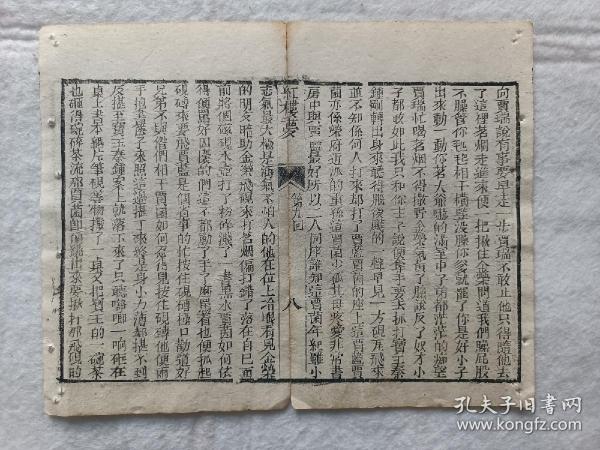 向賈瑞說有事要早走一步賈瑞不敢止他只得隨他去
了這裡茗烟走進來便一把揪住金榮問道我們屁股
不管你相干橫竪沒你爹就罷了你是好小子
出來動一動你茗大爺嚇的滿室中子弟都茫茫的痴望
賈瑞忙喝茗烟不得撒野金榮氣黃了臉說反了奴才小
子都敢如此我只和你主子說便奪手要去抓打寶玉秦
鍾剛轉出身來聽得腦後颼的一聲早見一方硯瓦飛來
並不知係何人打來却打了賈藍賈菌的座上這賈藍賈
菌亦係榮府近派的重孫這賈菌少孤其母疼愛非常書
房中與賈藍最好所以二人同座誰知這賈菌年紀雖小
紅樓夢
第九回
八
志氣最大極是淘氣不怕人的他在位上冷眼看見金榮
的朋友暗助金榮飛硯來打茗烟偏打錯了落在自己面
前將個磁硯水壺打了粉碎濺了一書墨水賈菌如何依
得便罵好囚攘的們這不都動了手了麽罵着也便抓起
硯磚來要飛賈藍是個省事的忙按住硯磚極口勸道好
兄弟不與偺們相干賈菌如何忍得見按住硯磚他便兩
手抱起書篋子來照這邊擲了來終是身小力薄却擲不到
反擲至寶玉秦鍾案上就落下來了只聽嘩啷一响砸在
桌上書本紙片筆硯等物撒了一桌又把寶玉的一碗茶
也砸得碗碎茶流那賈菌卽便跳出來要揪打那飛硯的
孔夫子旧书网
www.kongfz.com